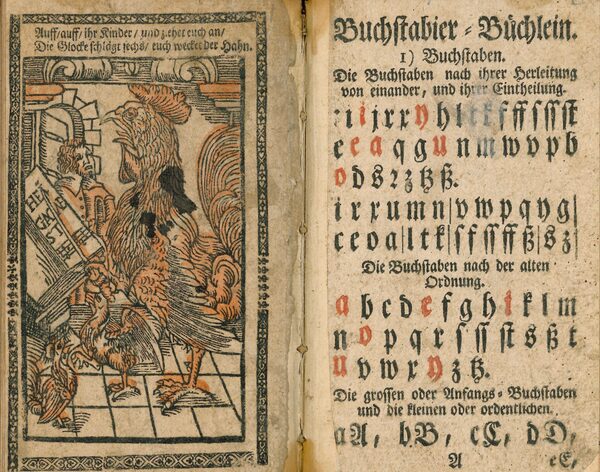 Auff/auff/ihr Kinder/und ziehet euch an/
Die Glocke schlägt sechs/euch wecket der Hahn.
Buchstabier-Büchlein.
1) Buchstaben.
Die Buchstaben nach ihrer Herleitung
von einander, und ihrer Eintheilung.
r i i j r x y h l t k f ff ſ ſſ ſt
c e a q g u n m w v p b
o d s 2 z tz ß.
i r x u m n|v w p q y g|
c e o a|l t k|ſ f ſſ ff ß|s z|
Die Buchstaben nach der alten
Ordnung.
a b c d e f g h i k l m
n o p q r ſ ſſ ſt s ß t
u v w x y z tz.
Die grossen oder Anfangs-Buchstaben
und die kleinen oder ordentlichen.
aA, bB, cC, dD,
A eE,